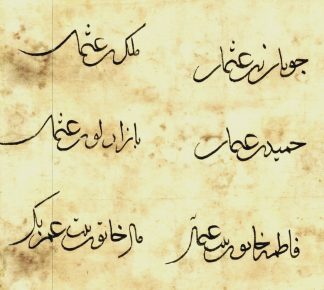 جوبان بن عثمان ملك بن عثمان
حميد بن عثمان بازارلو بن عثمان
فاطمه خاتون بنت عثمان مال خاتون بنت عمر بك